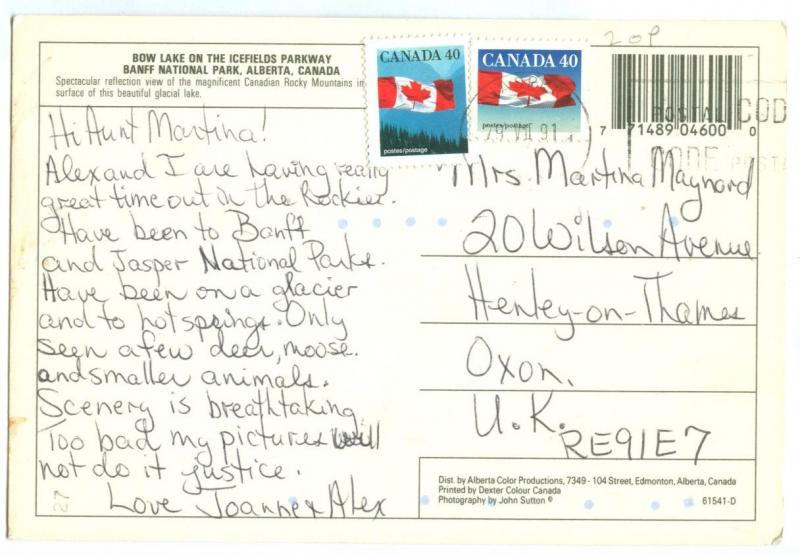 BOW LAKE ON THE ICEFIELDS PARKWAY
BANFF NATIONAL PARK, ALBERTA, CANADA
Spectacular reflection view of the magnificent Canadian Rocky Mountains in
surface of this beautiful glacial lake.
Hi Aunt Martina!
Alex and I are having really
great time out in the Rockies.
Have been to Banff
and Jasper National Parks.
Have been on a glacier
and to hotsprings. Only
seen a few deer, moose
and smaller animals.
Scenery is breathtaking
Too bad my pictures will
not do it justice.
Love Joanne & Alex
27
CANADA 40
postes/postage
CANADA 40
postes/postage
VII 91
20P
7 71489 04600 0
POSTAL CODE
CODE POSTAL
Mrs Martina Maynard
20 Wilson Avenue
Henley-on-Thames
Oxon.
U.K.
RE91E7
Dist. by Alberta Color Productions, 7349 - 104 Street, Edmonton, Alberta, Canada
Printed by Dexter Colour Canada
Photography by John Sutton ©
61541-D